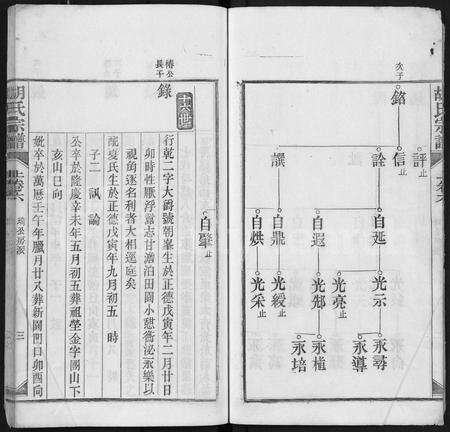 胡氏宗譜
次子
銘
信止
評止
詮
譔
自延
自遐
自鼎
自烘
光示
光亮止
光郜
光綬止
光采止
永尋
永導
永植
永培
自肇止
十六世
椿公長子
錄
行乾二字大爵號朝峯生於正德戊寅年二月廿日
卯時性厭浮囂志甘澹泊田園小憩衡泌永樂以
視角逐名利者大相逕庭矣
配夏氏生於正德戊寅年九月初五 時
子二 諷 論
公卒於隆慶辛未年五月初五葬祖塋金字園山下
亥山巳向
妣卒於萬曆壬午年臘月廿八葬新園凹曰卯酉向
胡氏宗譜
卷六
公房派
三